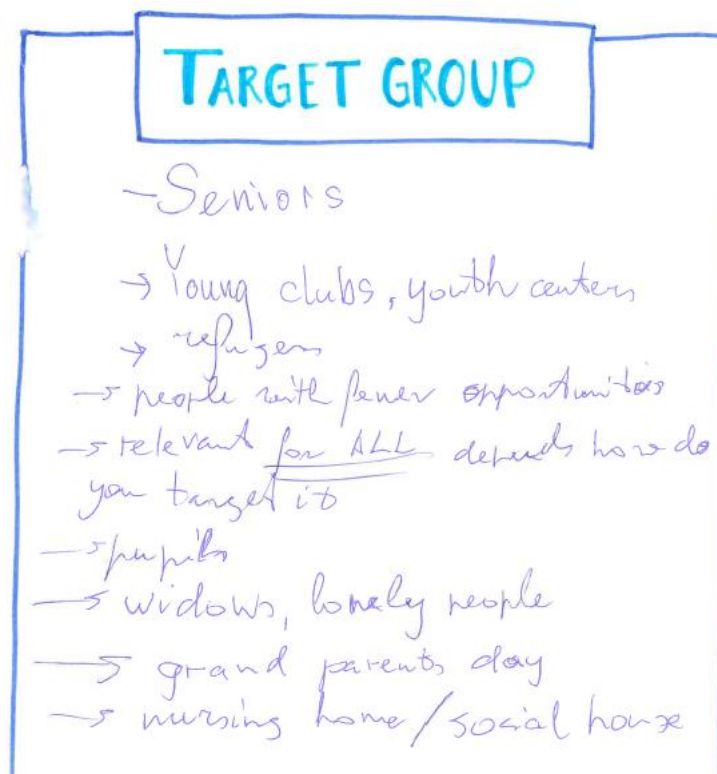 TARGET GROUP
- Seniors
→ Young clubs, youth centers
→ refugees
→ people with fewer opportunities
→ relevant for ALL depends how do
you target it
→ pupils
→ widows, lonely people
→ grand parents day
→ nursing home/social house